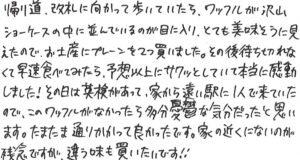 帰り道、改札に向かって歩いていたら、ワッフルが沢山
ショーケースの中に並んでいるのが目に入り、とても美味そうに見
えたので、お土産にプレーンを2つ買いました。その後待ち切れな
くて早速食べてみたら、予想以上にサクッとしていて本当に感動
しました!その日は英検があって、家から遠い駅に1人で来ていた
ので、このワッフルがなかったら多分憂鬱な気分だったと思い
ます。たまたま通りかかって良かったです。家の近くにないのが
残念ですが、違う味も買いたいです!!